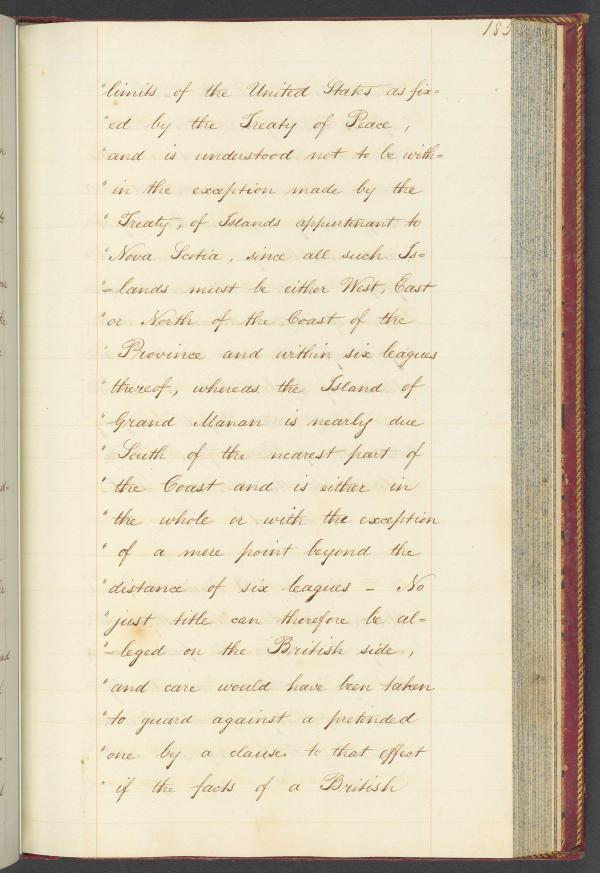 183
" limits of the United States as fix=
" ed by the Treaty of Peace,
" and is understood not to be with=
" in the exception made by the
" Treaty, of Islands appurtenant to
" Nova Scotia, since all such Is=
" =lands must be either West, East
" or North of the Coast of the
" Province and within six leagues
" thereof, whereas the Island of
" Grand Manan is nearly due
" South of the nearest part of
" the Coast and is either in
" the whole or with the exception
" of a mere point beyond the
" distance of six leagues – No
" just title can therefore be al=
" =leged on the British side,
" and care would have been taken
" to guard against a pretended
" one by a clause to that effect
" if the facts of a British